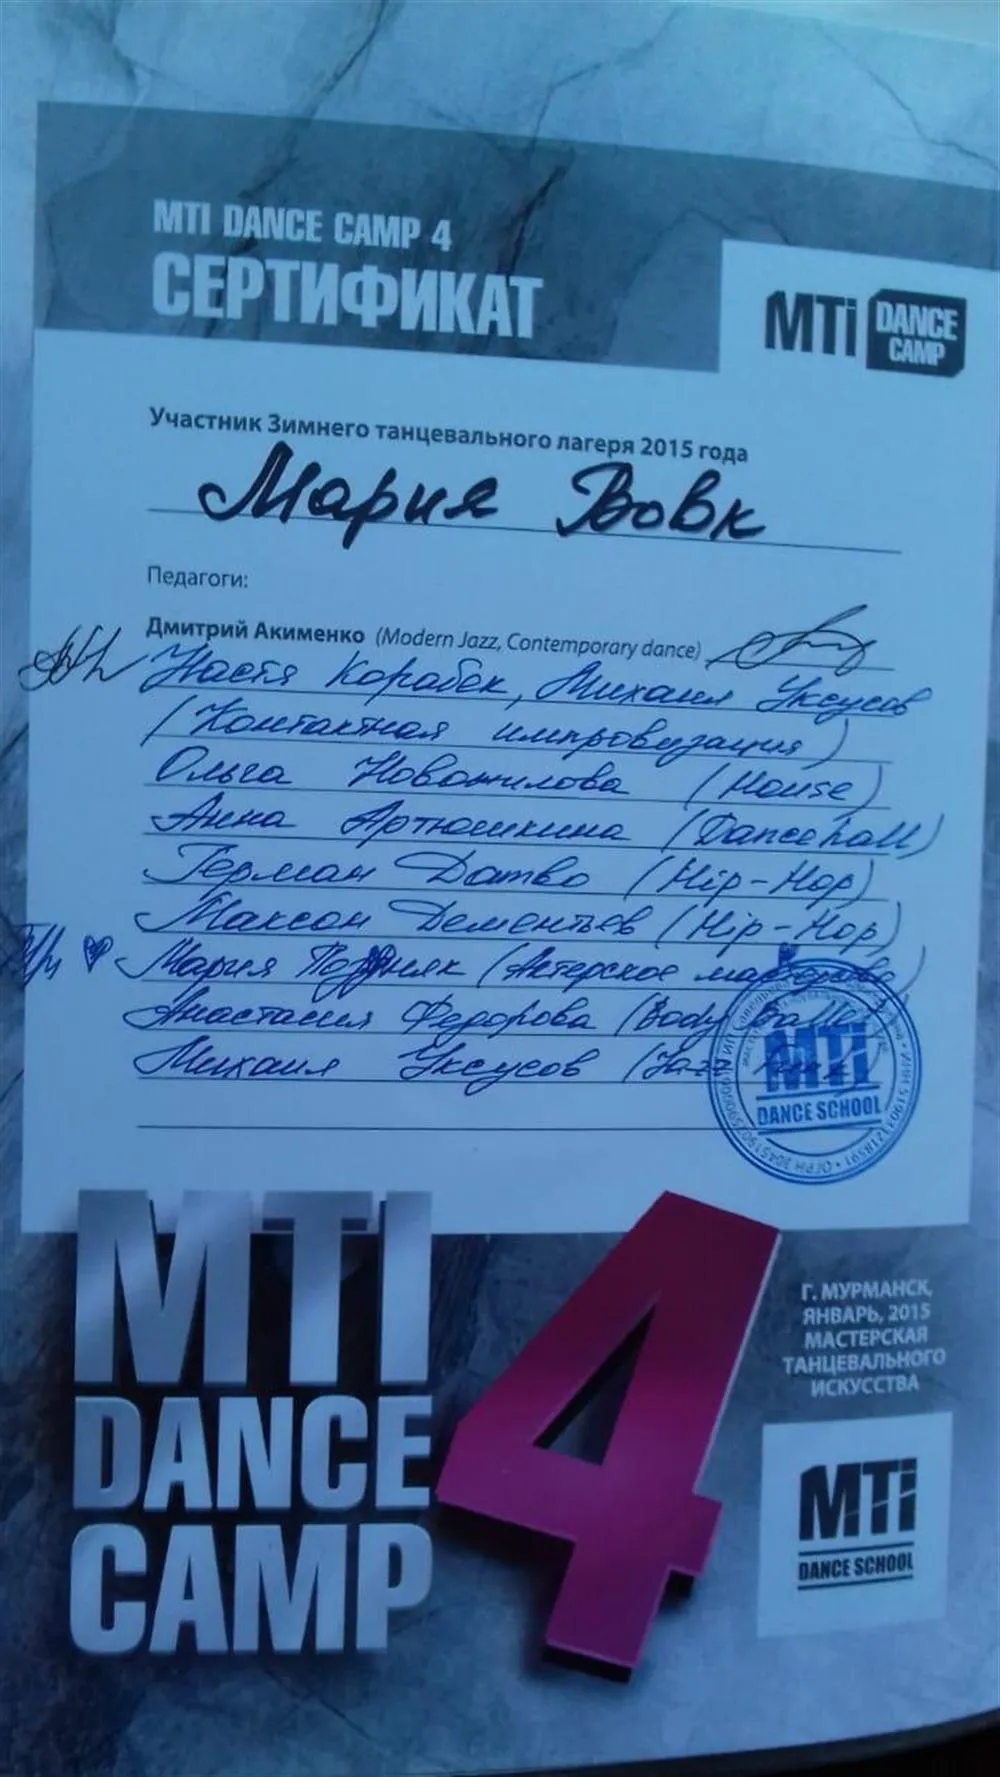 MTI DANCE CAMP 4
СЕРТИФИКАТ
MTi DANCE CAMP
Участник Зимнего танцевального лагеря 2015 года
Мария Вовк
Педагоги:
Дмитрий Акименко (Modern Jazz, Contemporary dance)
Настя Корабек, Михаил Уксусов
(Контактная импровизация)
Ольга Новожилова (House)
Анна Артюшкина (Dancehall)
Герман Датво (Hip-Hop)
Максон Дементьев (Hip-Hop)
Мария Поздняк (Актерское мастерство)
Анастасия Федорова (Body Ballet)
Михаил Уксусов (Jazz Funk)
MTi
DANCE SCHOOL
MTI
DANCE
CAMP
4
Г. МУРМАНСК,
ЯНВАРЬ, 2015
МАСТЕРСКАЯ
ТАНЦЕВАЛЬНОГО
ИСКУССТВА
MTi
DANCE SCHOOL